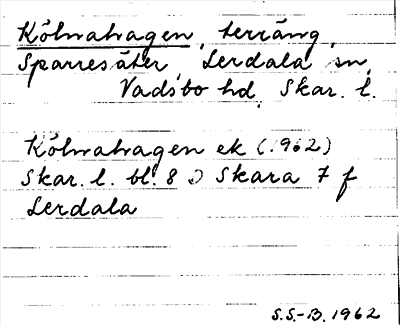 Kölnahagen, terräng,
Sparresäter, Lerdala sn,
Vadsbo hd, Skar. l.
Kölnahagen ek (1962)
Skar. l. bl. 8 D Skara 7 f
Lerdala
S.S.-B. 1962